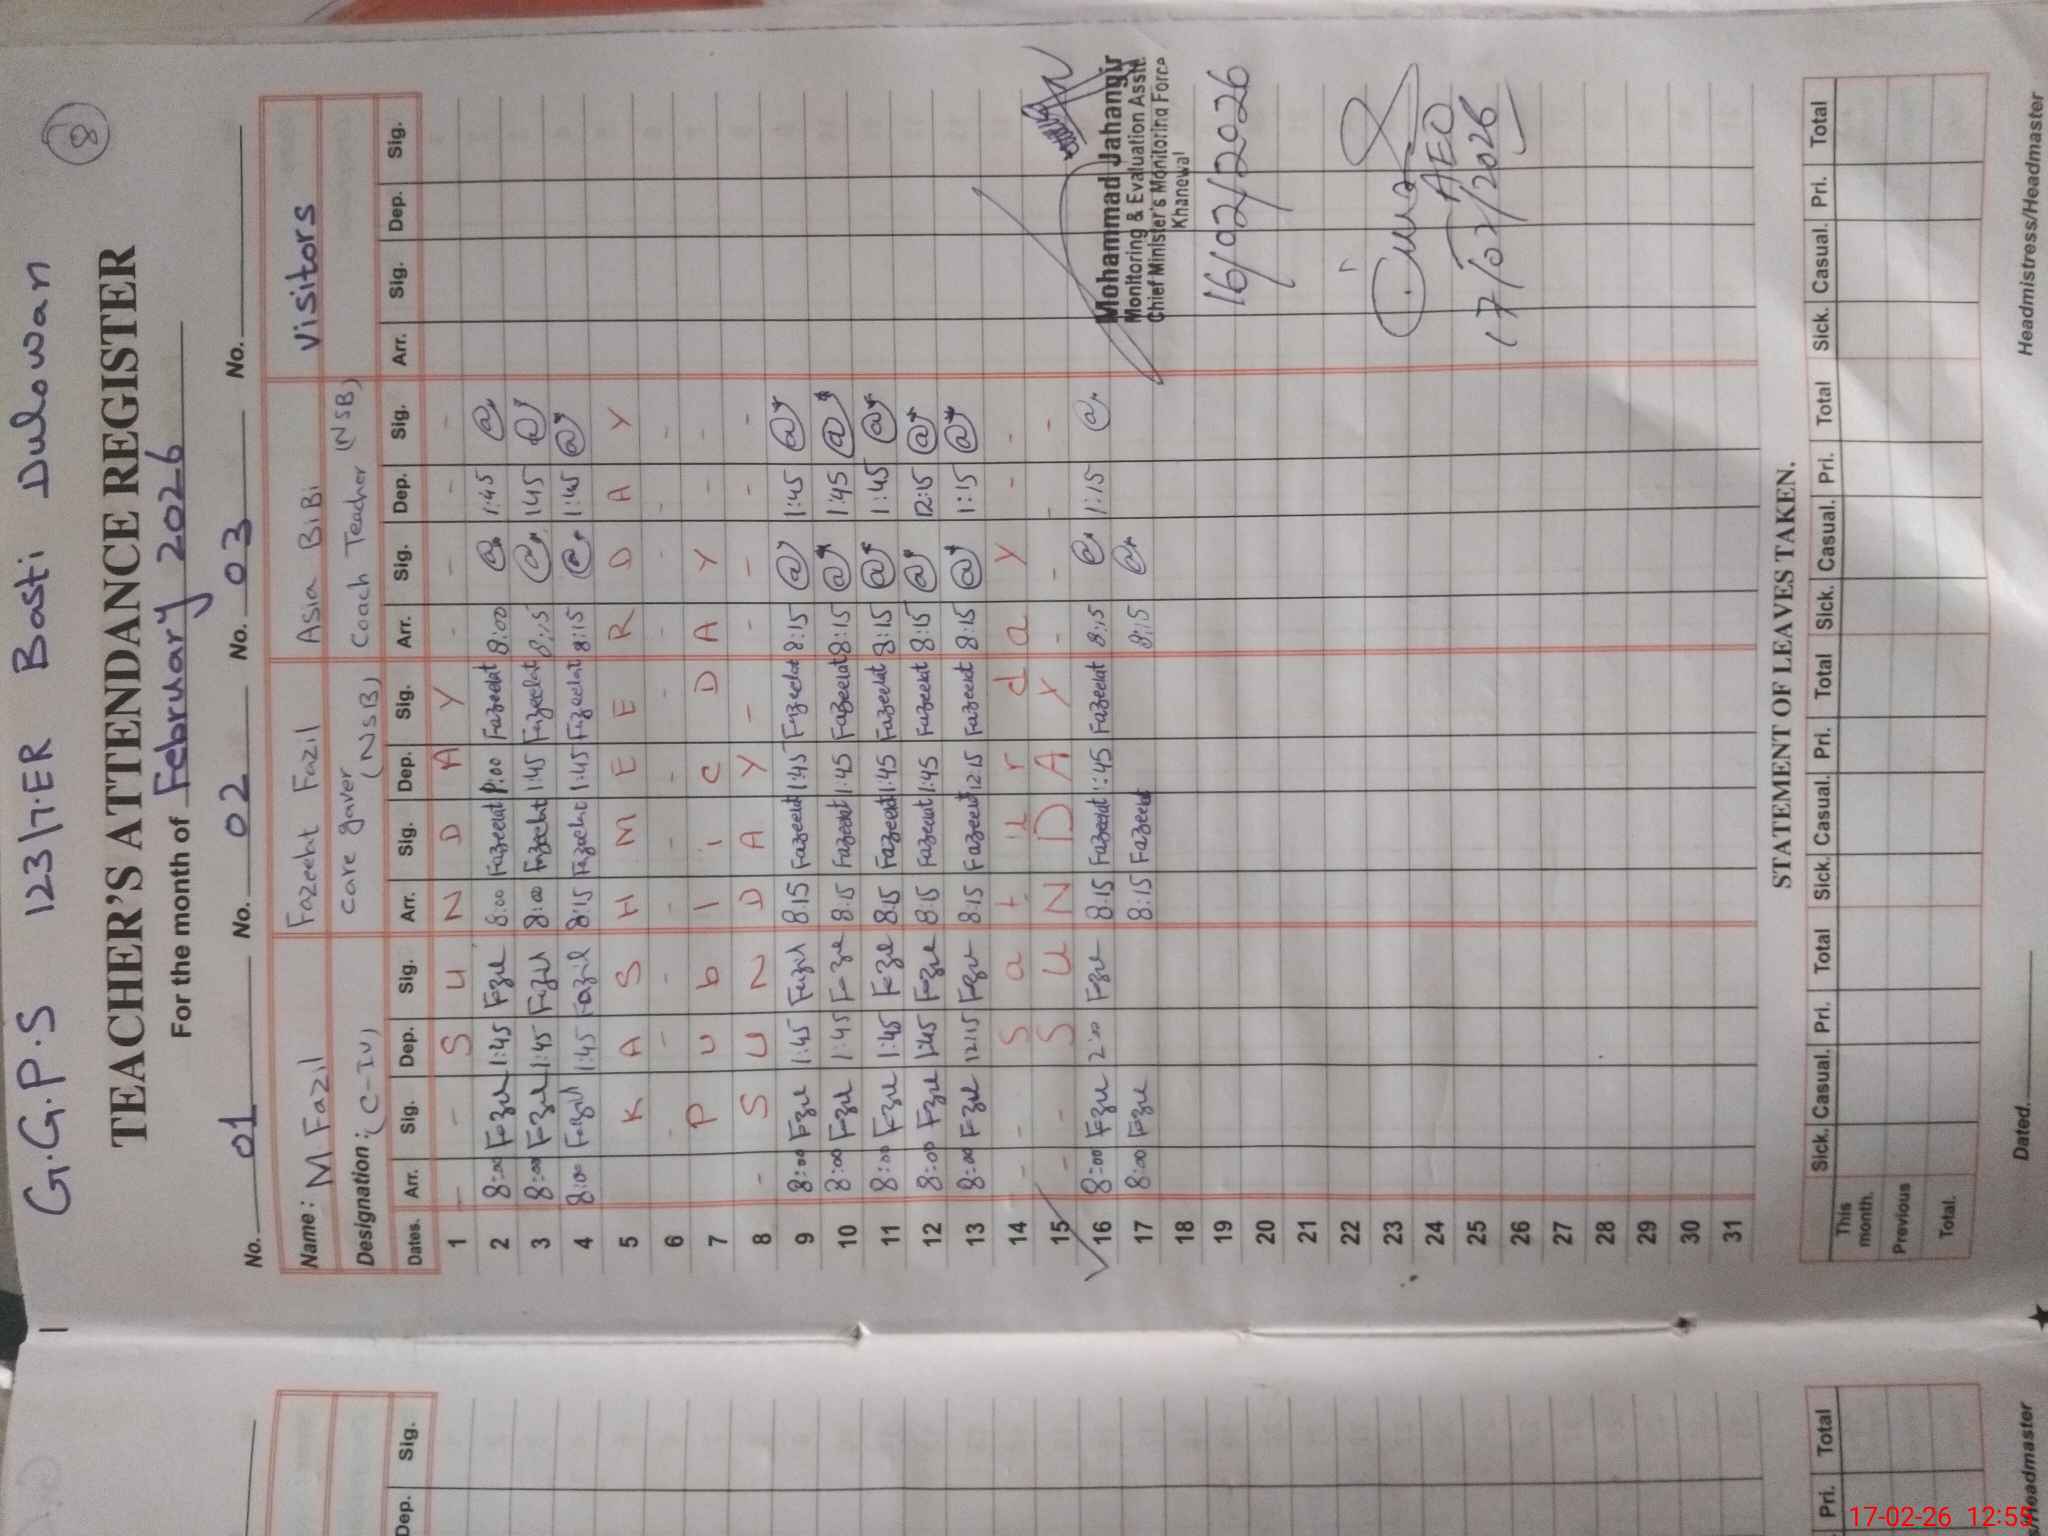 8
G.G.P.S 123/7.ER Basti Dulowan
TEACHER'S ATTENDANCE REGISTER
For the month of February 2026
No. 01 No. 02 No. 03 No.
Name: M Fazil Fazeelat Fazil Asia BiBi Visitors
Designation: (C-IV) Care gaver (NSB) Coach Teacher (NSB)
Dates. Arr. Sig. Dep. Sig. Arr. Sig. Dep. Sig. Arr. Sig. Dep. Sig. Arr. Sig. Dep. Sig.
1 - - S U N D A Y - - - -
2 8:00 1:45 8:00 Fazeelat 1:00 Fazeelat 8:00 1:45
3 8:00 1:45 8:00 Fazeelat 1:45 Fazeelat 8:15 1:45
4 8:00 Fazil 1:45 Fazil 8:15 Fazeelat 1:45 Fazeelat 8:15 1:45
5 K A S H M E E R D A Y
6 - - - - - - - - -
7 P u b l i c D A Y - -
8 - S U N D A Y - - - - -
9 8:00 1:45 8:15 Fazeelat 1:45 Fazeelat 8:15 1:45
10 8:00 1:45 8:15 Fazeelat 1:45 Fazeelat 8:15 1:45
11 8:00 1:45 8:15 Fazeelat 1:45 Fazeelat 8:15 1:45
12 8:00 1:45 8:15 Fazeelat 1:45 Fazeelat 8:15 12:15
13 8:00 12:15 8:15 Fazeelat 12:15 Fazeelat 8:15 1:15
14 - - S a t u r d a y - -
15 - - S U N D A Y - - - -
16 8:00 2:00 8:15 Fazeelat 1:45 Fazeelat 8:15 1:15
17 8:00 8:15 Fazeelat 8:15
18
19
20
21
22
23
24
25
26
27
28
29
30
31
Mohammad Jahangir
Monitoring & Evaluation Asstt.
Chief Minister's Monitoring Force
Khanewal
16/02/2026
AEO
17/02/2026
STATEMENT OF LEAVES TAKEN.
Sick. Casual. Pri. Total Sick. Casual. Pri. Total Sick. Casual. Pri. Total Sick. Casual. Pri. Total
This month.
Previous
Total.
Dated. Headmistress/Headmaster
Dep. Sig.
Pri. Total
s/Headmaster
17-02-26 12:55